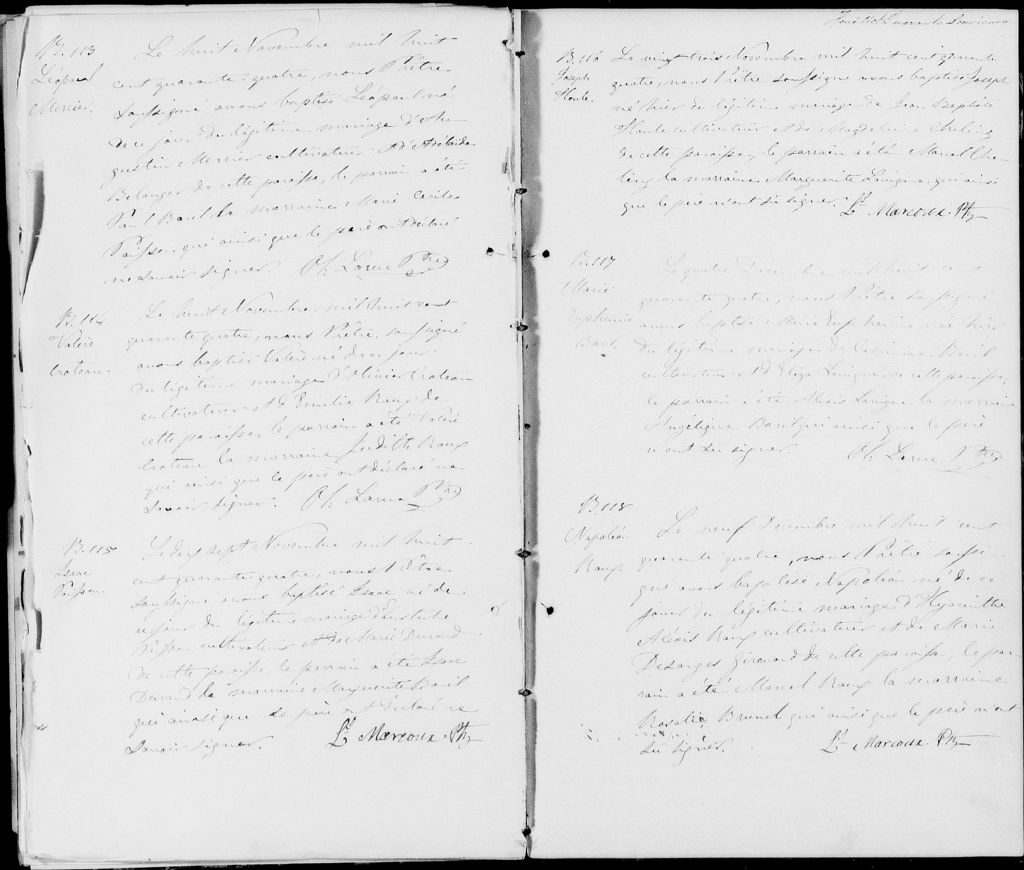 B. 113
Léopaul
Mercier.
Le huit Novembre mil huit
cent quarante quatre, nous Prêtre
soussigné avons baptisé Léopaul né
de ce jour du légitime mariage d'Au-
gustin Mercier cultivateur et d'Adélaïde
Belanger de cette paroisse, le parrain a été
Paul Baril la marraine Marie Cecile
Poisson qui ainsi que le père ont déclaré
ne savoir signer. Ch. Larue Ptre
B. 114
Valère
Croteau.
Le huit Novembre mil huit cent
quarante quatre, nous Prêtre soussigné
avons baptisé Valère né de ce jour
du légitime mariage d'Olivier Croteau
cultivateur et d'Emelie Raux de
cette paroisse, le parrain a été Valère
Croteau la marraine Judith Raux
qui ainsi que le père ont déclaré ne
savoir signer. Ch. Larue Ptre
B. 115
Isaac
Poisson.
Le dix sept Novembre mil huit
cent quarante quatre, nous Prêtre
soussigné avons baptisé Isaac né de
ce jour du légitime mariage d'Eustache
Poisson cultivateur et de Marie Durand
de cette paroisse, le parrain a été Isaac
Durand la marraine Marguerite Baril
qui ainsi que le père ont déclaré ne
savoir signer. Lt Marcoux Ptr
B. 116
Joseph
Houle.
Le vingt trois Novembre mil huit cent quarante
quatre, nous Prêtre soussigné avons baptisé Joseph
né hier du légitime mariage de Jean Baptiste
Houle cultivateur et de Magdeleine
de cette paroisse, le parrain a été Marcel
la marraine Marguerite Lavigne qui ainsi
que le père n'ont su signer. Lt Marcoux. Ptr
B. 117
Marie
Euphémie
Baril
Le quatre Décembre mil huit cent
quarante quatre, nous Prêtre soussigné
avons baptisé Marie Euphémie née hier
du légitime mariage de Baril
cultivateur et d'Eliza Lavigne de cette paroisse,
le parrain a été Alexis Lavigne la marraine
Angélique Baril qui ainsi que le père
n'ont su signer. Ch. Larue Ptre
B. 118
Napoléon
Raux.
Le neuf Decembre mil huit cent
quarante quatre, nous Prêtre soussi-
gné avons baptisé Napoléon né de ce
jour du légitime mariage d'Hyacinthe
Alexis Raux cultivateur et de Marie
Desanges Girouard de cette paroisse, le par-
rain a été Marcel Raux la marraine
Rosalie Brunel qui ainsi que le père n'ont
su signer. Lt Marcoux. Ptr